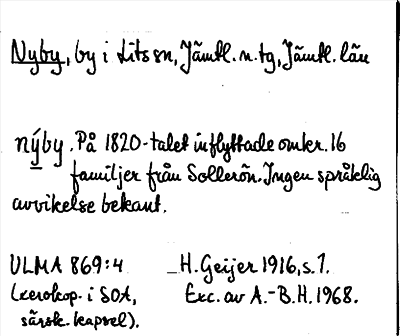 Nyby, by i Lits sn, Jämtl. n. tg, Jämtl. län
nýby. På 1820-talet inflyttade omkr. 16
familjer från Sollerön. Ingen språklig
avvikelse bekant.
ULMA 869:4 _H. Geijer 1916, s. 1.
(xerokop. i SOA, Exc. av A.-B.H. 1968.
särsk. kapsel).